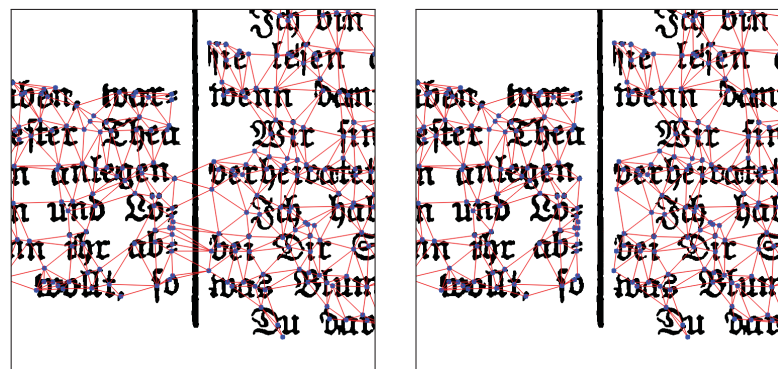 iben war=
eſter Thea
n anlegen
n und Lo=
nn ihr ab=
wollt ſo
Ich bin
ſie leſen
wenn dam
Wir ſin
verheiratet
Ich hab
bei Dir S
was Blum
Du dar
iben war=
eſter Thea
n anlegen
n und Lo=
nn ihr ab=
wollt ſo
Ich bin
ſie leſen
wenn dam
Wir ſin
verheiratet
Ich hab
bei Dir S
was Blum
Du dar